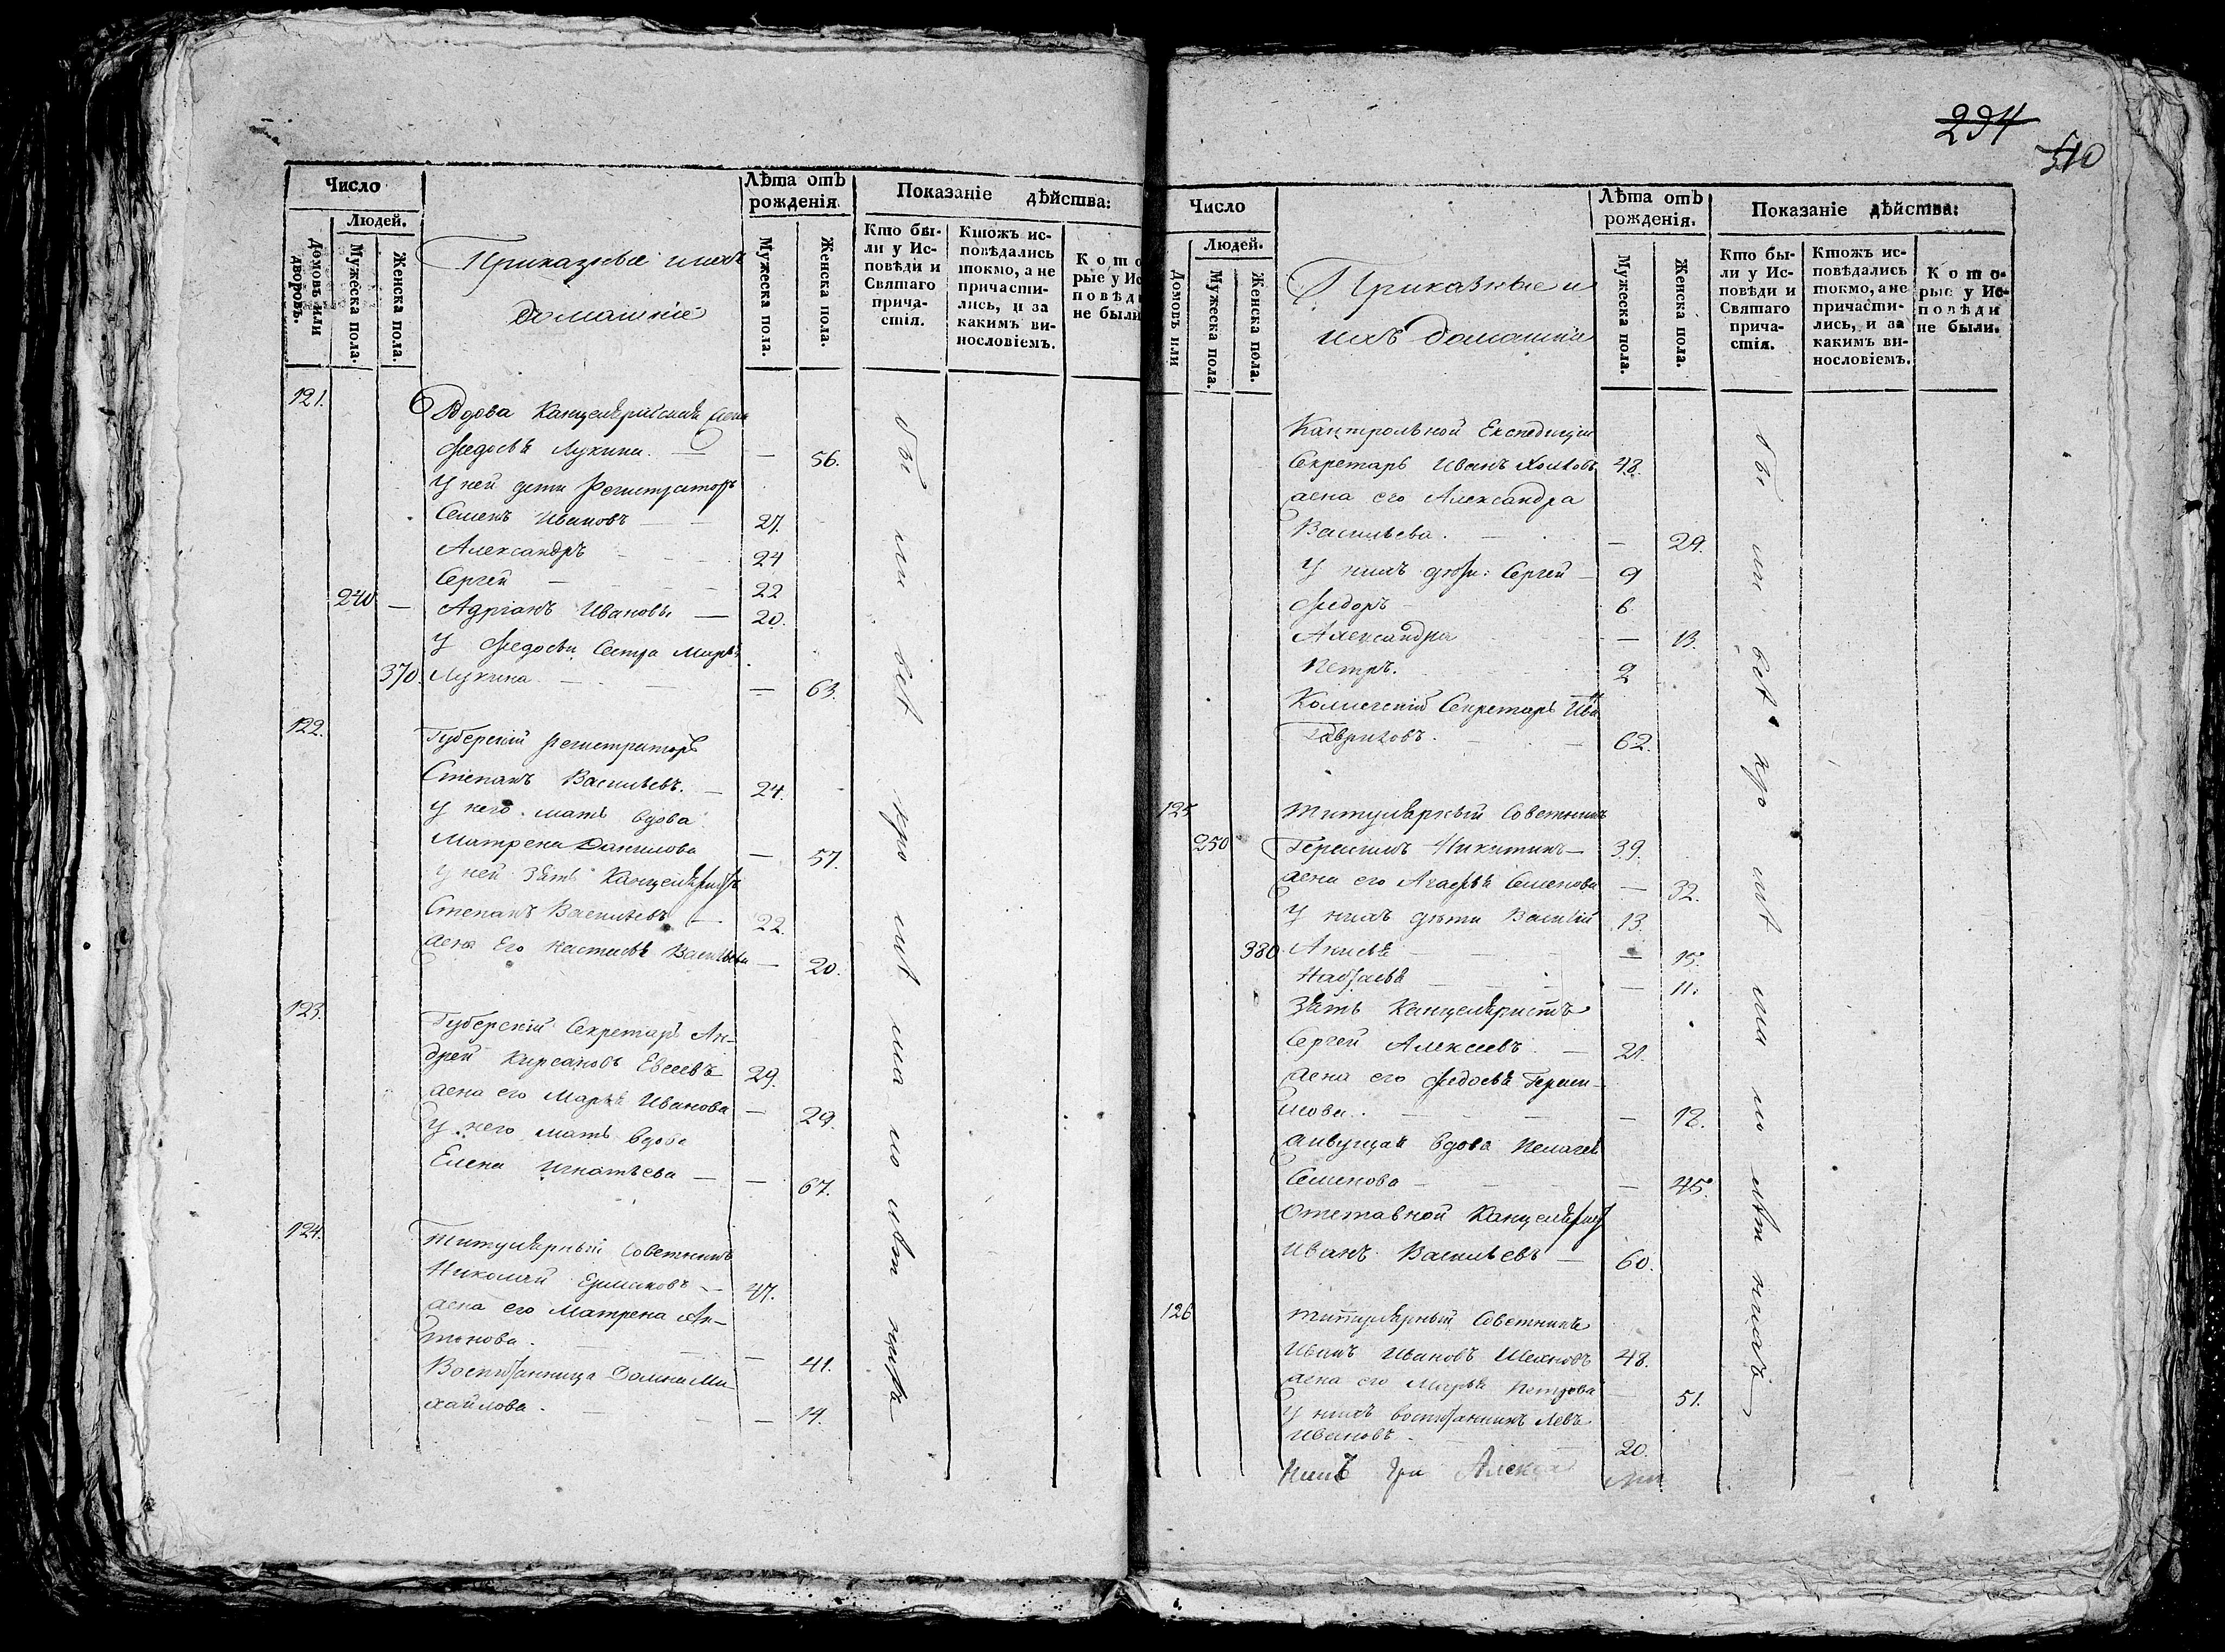 Число
Людей.
Домовъ или дворовъ.
Мужеска пола.
Женска пола.
Приказные ихъ
домашніе
Лѣта отъ
рожденія
Мужеска пола.
Женска пола.
Показаніе дѣйства:
Кто бы-
ли у Ис-
повѣди и
Святаго
прича-
стія.
Ктожъ ис-
повѣдались
токмо, а не
причасти-
лись, и за
какимъ ви-
нословіемъ.
Кото
рые у Ис
повѣд
не были
121. Вдова Канцелярійская жена
Федосья Лукина. — — 56.
У ней дети Регистраторъ
Семенъ Ивановъ — — 27.
Александръ — — 24
Сергей — — 22
240 — Адріанъ Ивановъ — 20.
У Федосьи Сестра Марья
370. Лукина — — 63.
122. Губерскій регистраторъ
Степанъ Васильевъ. — 24.
У него мать вдова
Матрена Данилова — 57.
У ней зять Канцеляристъ
Степанъ Васильевъ — 22.
жена Его Настасья Васильева — 20.
123. Губерскій Секретарь Ан-
дрей Кирсановъ Евсеевъ 29.
жена его Марья Иванова — 29.
У него мать вдова
Елена Игнатьева — — 67.
124. Титулярный Советникъ
Николай Ермаковъ — 47.
жена его Матрена Ан-
тонова. — 41.
Воспитанница Домна Ми-
хайлова. — — 14.
бы ли всѣ
294
510
Число
Людей.
Домовъ или
Мужеска пола.
Женска пола.
Приказные и
ихъ домашніе
Лѣта отъ
рожденія.
Мужеска пола.
Женска пола.
Показаніе дѣйства:
Кто бы-
ли у Ис-
повѣди и
Святаго
прича-
стія.
Ктожъ ис-
повѣдались
токмо, а не
причасти-
лись, и за
какимъ ви-
нословіемъ.
Кото-
рые у Ис-
повѣди
не были.
Кантрольной Експедиціи
Секретарь Иванъ 48.
жена его Александра
Васильева. — — 29.
У нихъ дѣти: Сергей — 9
Федоръ — 6.
Александра — 13.
Петръ. 2
Колежскій Секретарь Ива
Гавриловъ. — 62.
125 Титулярный Советникъ
250 Герасимъ Никитинъ — 39.
жена его Агафья Семенова — 32.
У нихъ дѣти Василій 13.
380 Анисья — — 15.
— 11.
Зять Канцеляристъ
Сергей Алексеевъ. — 21.
жена его Федосья Гераси-
мова. — — 18.
живущая вдова Пелагея
Семенова — — 45.
Отставной Канцеляристъ
Иванъ Васильевъ — 60.
126 Титулярный Советникъ
Иванъ Ивановъ 48.
жена его Марья Петрова — 51.
У нихъ воспитанникъ Левъ
Ивановъ — 20.
бы ли всѣ